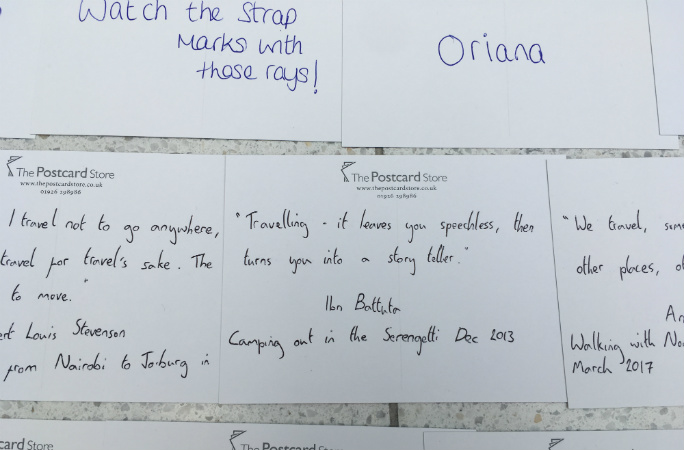 Watch the Strap
Marks with
those rays!
Oriana
The Postcard Store
www.thepostcardstore.co.uk
01926 298986
I travel not to go anywhere,
travel for travel's sake. The
to move."
Louis Stevenson
from Nairobi to Jo'burg in
The Postcard Store
www.thepostcardstore.co.uk
01926 298986
"Travelling - it leaves you speechless, then
turns you into a story teller."
Ibn Battuta
Camping out in the Serengetti Dec 2013
"We travel,
other places,
Walking with
March 2017
card Store
The Postcard Store